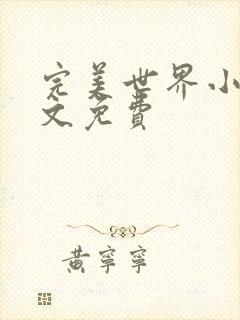 完美世界小
文免费
黄宁宁